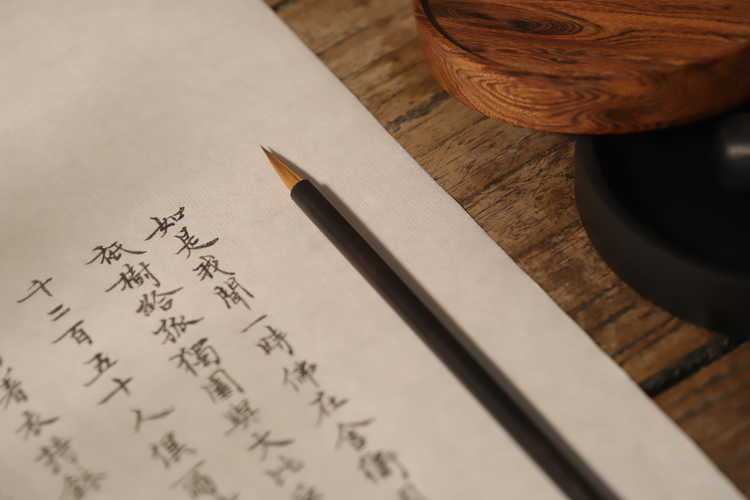 如是我聞一時佛在舍衛國
祇樹給孤獨園與大比
十二百五十人俱爾
著衣持鉢